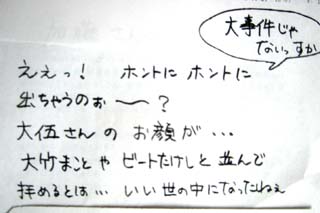 大事件じゃ
ないっすか
ええっ！ ホントに ホントに
出ちゃうのぉ〜？
大伍さんの お顔が...
大竹まことや ビートたけしと 並んで
拝めるとは... いい世の中になったねぇ